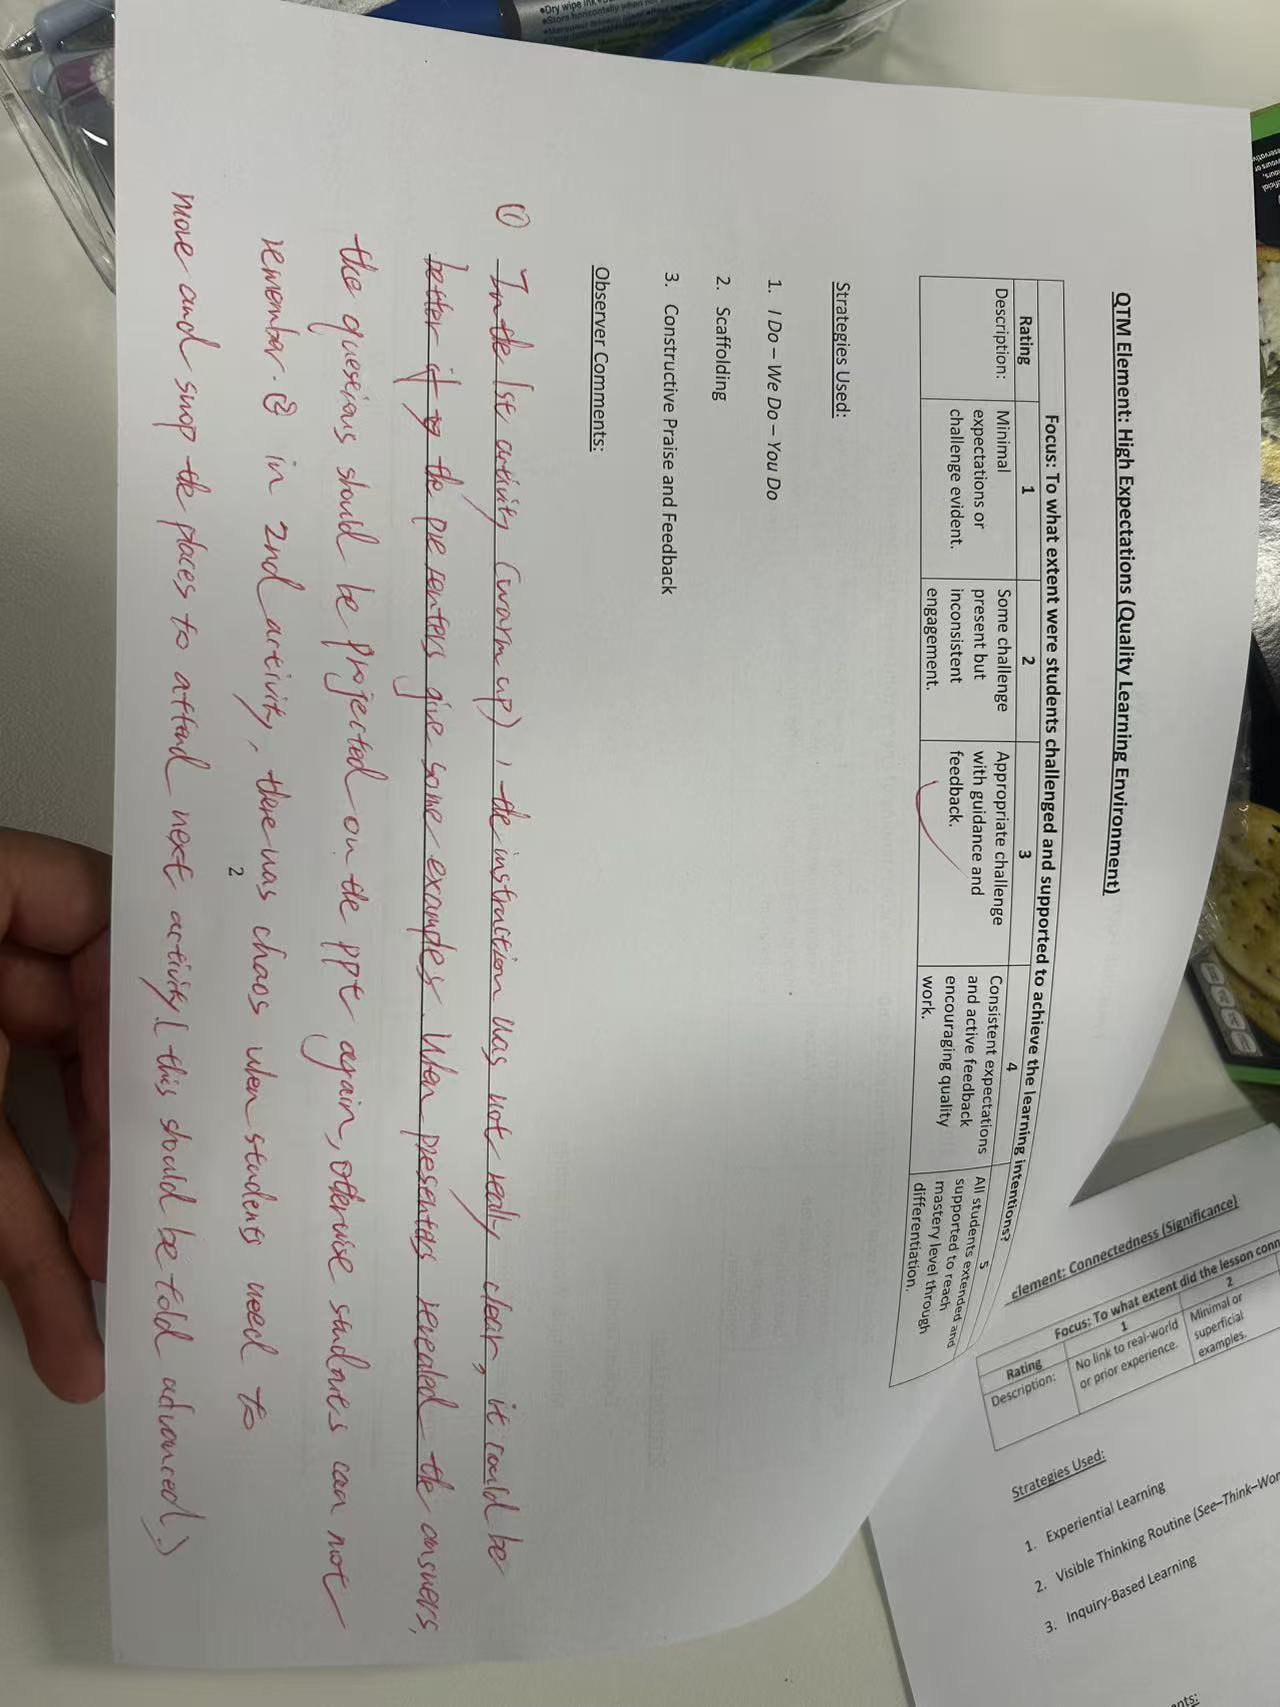 QTM Element: High Expectations (Quality Learning Environment)
Focus: To what extent were students challenged and supported to achieve the learning intentions?
Rating 1 2 3 4 5
Description:
Minimal
expectations or
challenge evident.
Some challenge
present but
inconsistent
engagement.
Appropriate challenge
with guidance and
feedback.
Consistent expectations
and active feedback
encouraging quality
work.
All students extended and
supported to reach
mastery level through
differentiation.
Strategies Used:
1. I Do – We Do – You Do
2. Scaffolding
3. Constructive Praise and Feedback
Observer Comments:
① In the 1st activity (warm up), the instruction was not really clear, it could be
better if the presenters give some examples. When presenters revealed the answers,
the questions should be projected on the ppt again, otherwise students can not
remember. ② in 2nd activity, there was chaos when students need to
move and swop the places to attend next activity (this should be told advanced.)
2
element: Connectedness (Significance)
Focus: To what extent did the lesson conn
Rating 1 2
Description:
No link to real-world
or prior experience.
Minimal or
superficial
examples.
Strategies Used:
1. Experiential Learning
2. Visible Thinking Routine (See–Think–Won
3. Inquiry-Based Learning
nts:
•Dry wipe ink
•Store horizontally when not